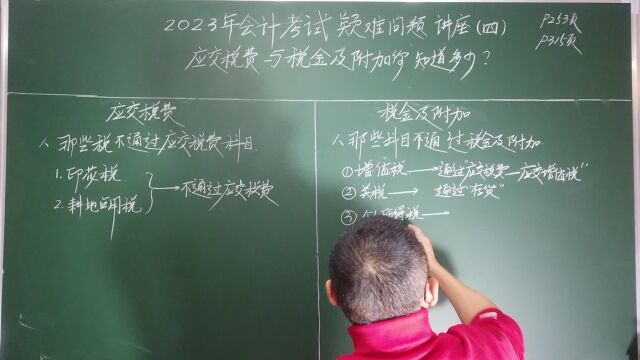 2023年会计考试疑难问题讲座(四)
P253页
P315页
应交税费与税金及附加你知道多少?
应交税费
一、那些税不通过应交税费科目
1.印花税
2.耕地占用税
不通过应交税费
税金及附加
一、那些科目不通过税金及附加
①增值税→通过"应交税费—应交增值税"
②关税→通过"存货"
③个人所得税→